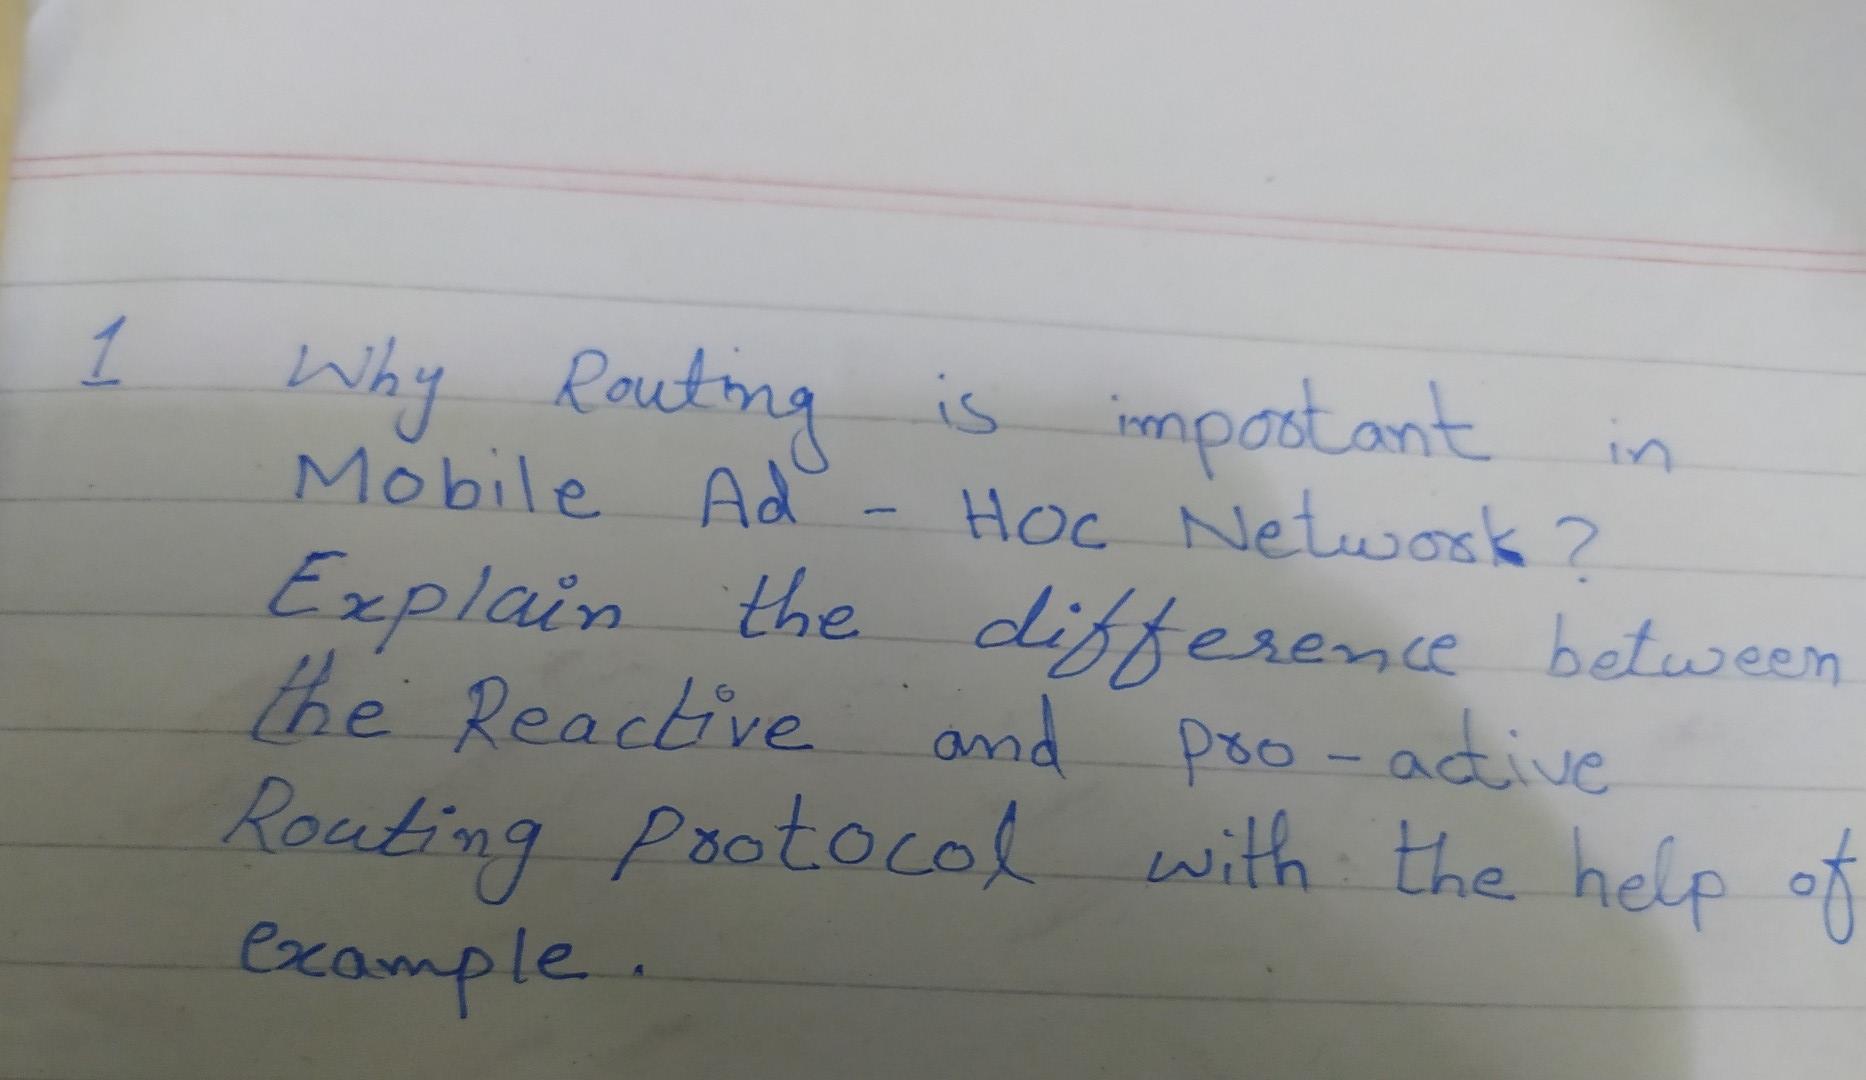 1 Why Routing is important in
Mobile Ad - Hoc Network?
Explain the difference between
the Reactive and pro-active
Routing Protocol with the help of
example.